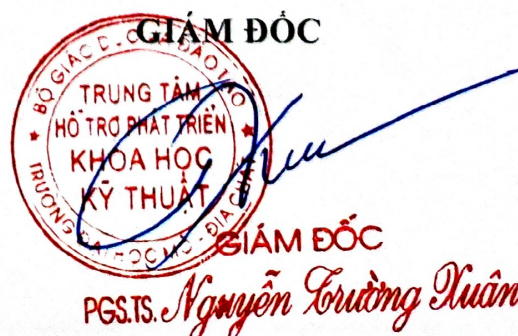 GIÁM ĐỐC
BỘ GIÁO DỤC VÀ ĐÀO TẠO
TRUNG TÂM
HỖ TRỢ PHÁT TRIỂN
KHOA HỌC
KỸ THUẬT
TRƯỜNG ĐẠI HỌC MỎ - ĐỊA CHẤT
GIÁM ĐỐC
PGS.TS. Nguyễn Trường Xuân